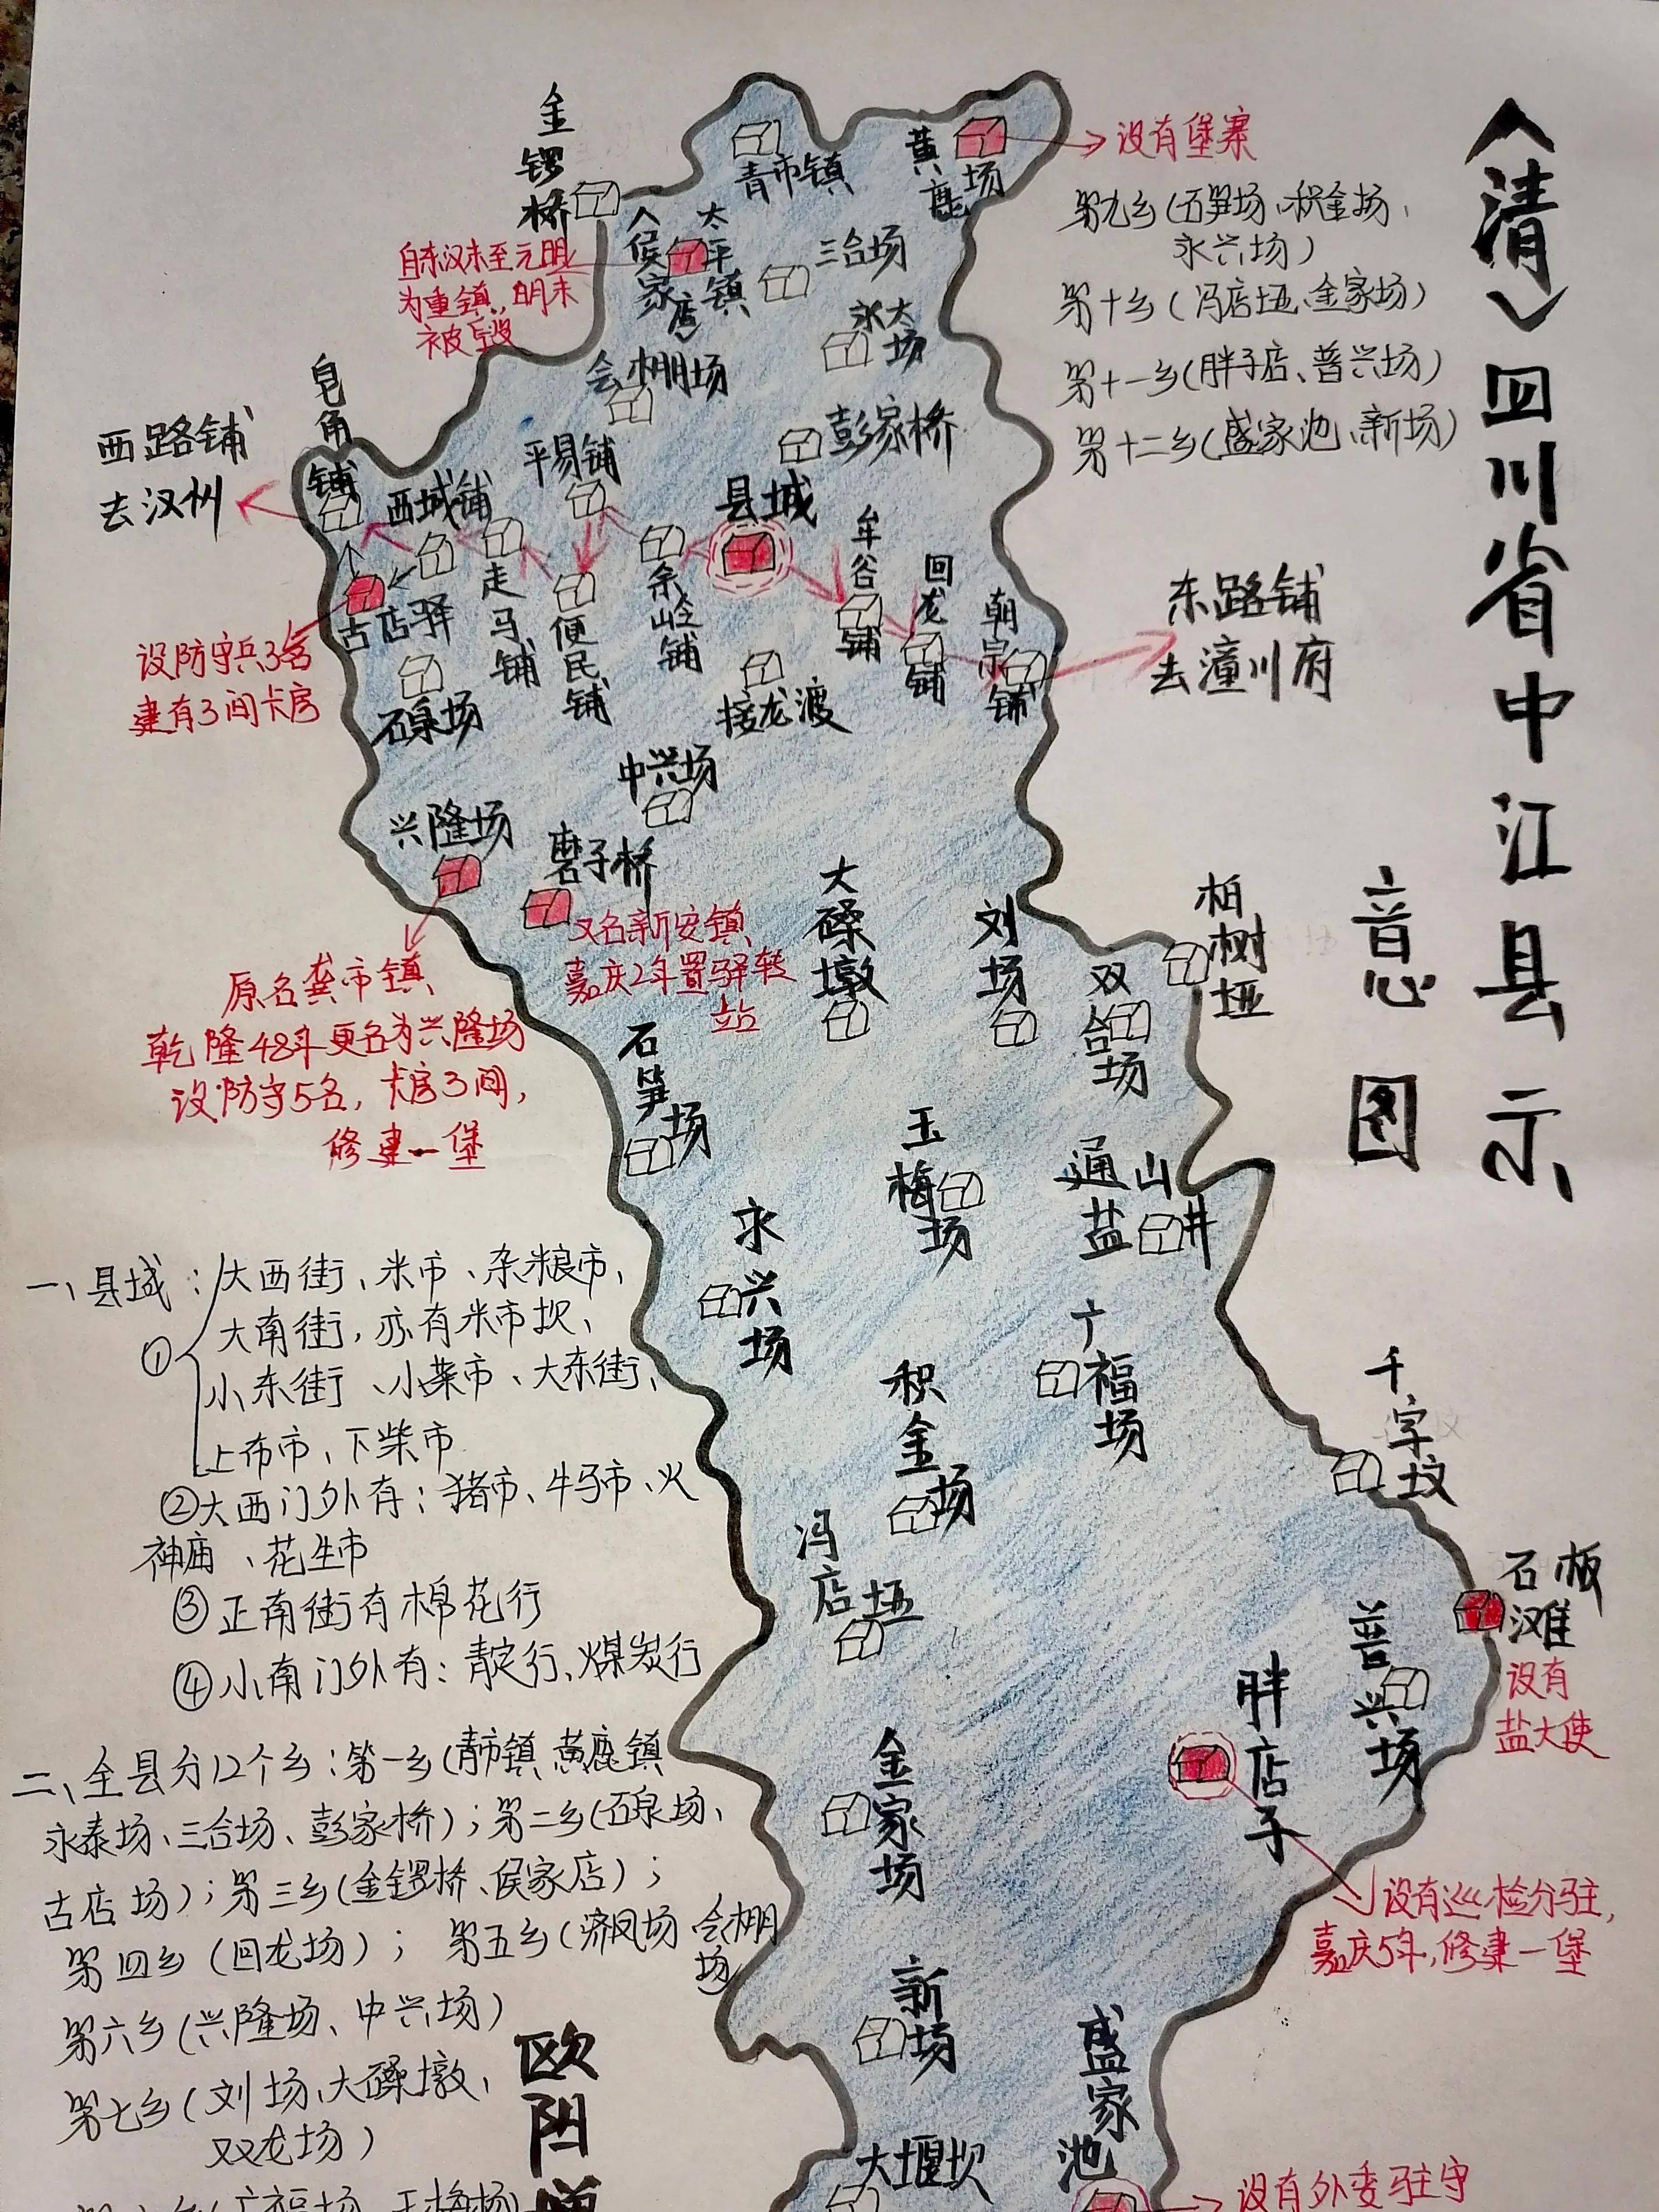 《清》四川省中江县示
意图
金锣桥
青市镇
黄鹿场
设有堡寨
人侯家店
太平镇
三合场
永太场
自东汉末至元明
为重镇，明末
被毁
会棚场
彭家桥
第九乡（石笋场、积金场、
永兴场）
第十乡（冯店垭、金家场）
第十一乡（胖子店、普兴场）
第十二乡（盛家池、新场）
皂角铺
西路铺
去汉州
西城铺
平易铺
县城
牟谷铺
回龙铺
朝宗铺
东路铺
去潼川府
古店驿
走马铺
便民铺
余山仝铺
设防守兵3名
建有3间卡房
石泉场
接龙渡
中兴场
兴隆场
磨子桥
又名新安镇、
嘉庆2年置驿转
站
原名龚市镇、
乾隆48年更名为兴隆场
设防守5名，卡房3间，
修建一堡
大磉墩
刘场
双合场
柏树垭
石笋场
玉梅场
通山盐井
永兴场
广福场
积金场
千字坟
冯店垭
石板滩
设有
盐大使
普兴场
胖店子
金家场
设有巡检分驻，
嘉庆5年，修建一堡
新场
盛家池
大堰坝
设有外委驻守
一、县城：
①大西街、米市、杂粮市、
大南街，亦有米市坝、
小东街、小菜市、大东街、
上布市、下柴市
②大西门外有：猪市、牛马市、火
神庙、花生市
③正南街有棉花行
④小南门外有：青定行、煤炭行
二、全县分12个乡：第一乡（青市镇、黄鹿镇
永泰场、三合场、彭家桥）；第二乡（石泉场、
古店场）；第三乡（金锣桥、侯家店）；
第四乡（回龙场）；第五乡（济凤场、会棚
场）
第六乡（兴隆场、中兴场）
第七乡（刘场、大磉墩、
双龙场）
欧阳